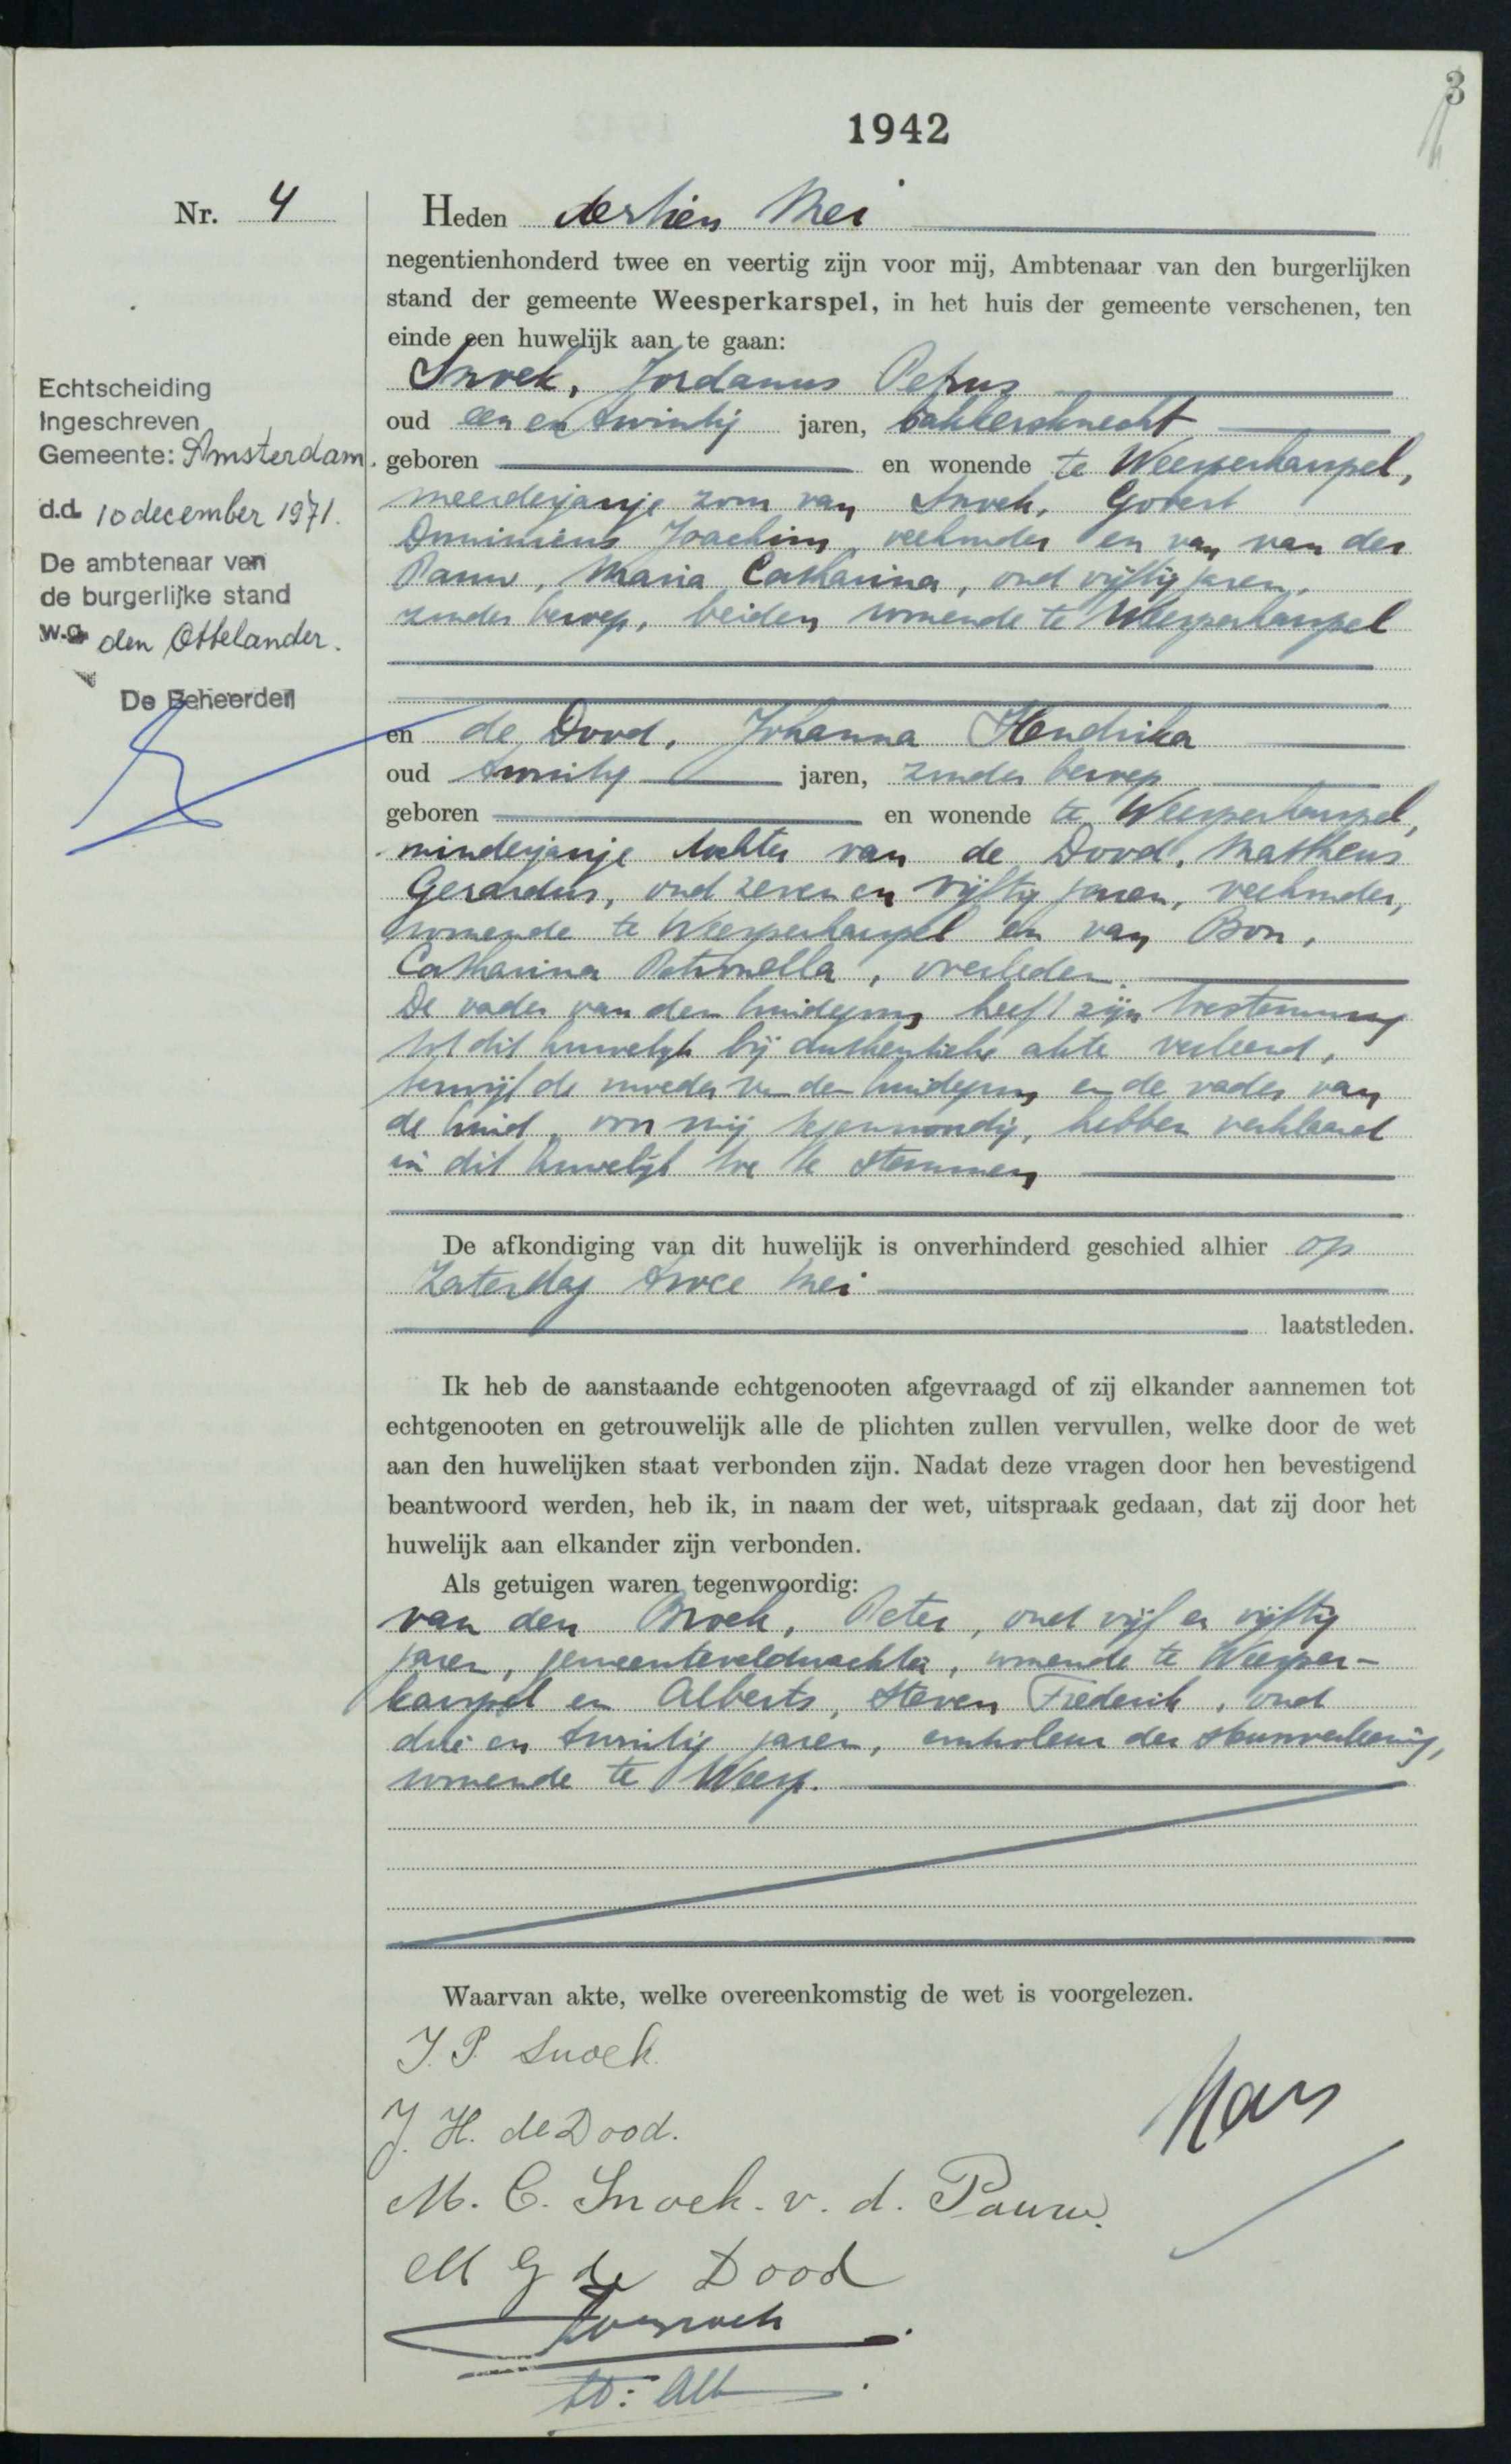 3
1942
Nr. 4
Heden dertien Mei
negentienhonderd twee en veertig zijn voor mij, Ambtenaar van den burgerlijken
stand der gemeente Weesperkarspel, in het huis der gemeente verschenen, ten
einde een huwelijk aan te gaan:
Snoek, Jordanus Petrus
oud een en twintig jaren, bakkersknecht
geboren en wonende te Weesperkarspel,
meerderjarige zoon van Snoek, Govert
Dominicus Joachim, veehouder en van van der
Pauw, Maria Catharina, oud vijftig jaren,
zonder beroep, beiden wonende te Weesperkarspel
en de Dood, Johanna Hendrika
oud twintig jaren, zonder beroep
geboren en wonende te Weesperkarspel,
minderjarige dochter van de Dood, Matheus
Gerardus, oud zeven en vijftig jaren, veehouder,
wonende te Weesperkarspel en van Bon,
Catharina Petronella, overleden.
De vader van den bruidegom heeft zijn toestemming
tot dit huwelijk bij authentieke akte verleend,
terwijl de moeder van den bruidegom en de vader van
de bruid, voor mij tegenwoordig, hebben verklaard
in dit huwelijk toe te stemmen
De afkondiging van dit huwelijk is onverhinderd geschied alhier op
Zaterdag twee Mei
laatstleden.
Ik heb de aanstaande echtgenooten afgevraagd of zij elkander aannemen tot
echtgenooten en getrouwelijk alle de plichten zullen vervullen, welke door de wet
aan den huwelijken staat verbonden zijn. Nadat deze vragen door hen bevestigend
beantwoord werden, heb ik, in naam der wet, uitspraak gedaan, dat zij door het
huwelijk aan elkander zijn verbonden.
Als getuigen waren tegenwoordig:
van den Broek, Peter, oud vijf en vijftig
jaren, gemeenteveldwachter, wonende te Weesper-
karspel en Alberts, Steven Frederik, oud
drie en twintig jaren, controleur der steunverleening,
wonende te Weesp.
Waarvan akte, welke overeenkomstig de wet is voorgelezen.
J. P. Snoek
J. H. de Dood.
M. C. Snoek-v. d. Pauw.
M G de Dood
Echtscheiding
Ingeschreven
Gemeente: Amsterdam.
d.d. 10 december 1971.
De ambtenaar van
de burgerlijke stand
w.g. den Ottelander.
De Beheerder